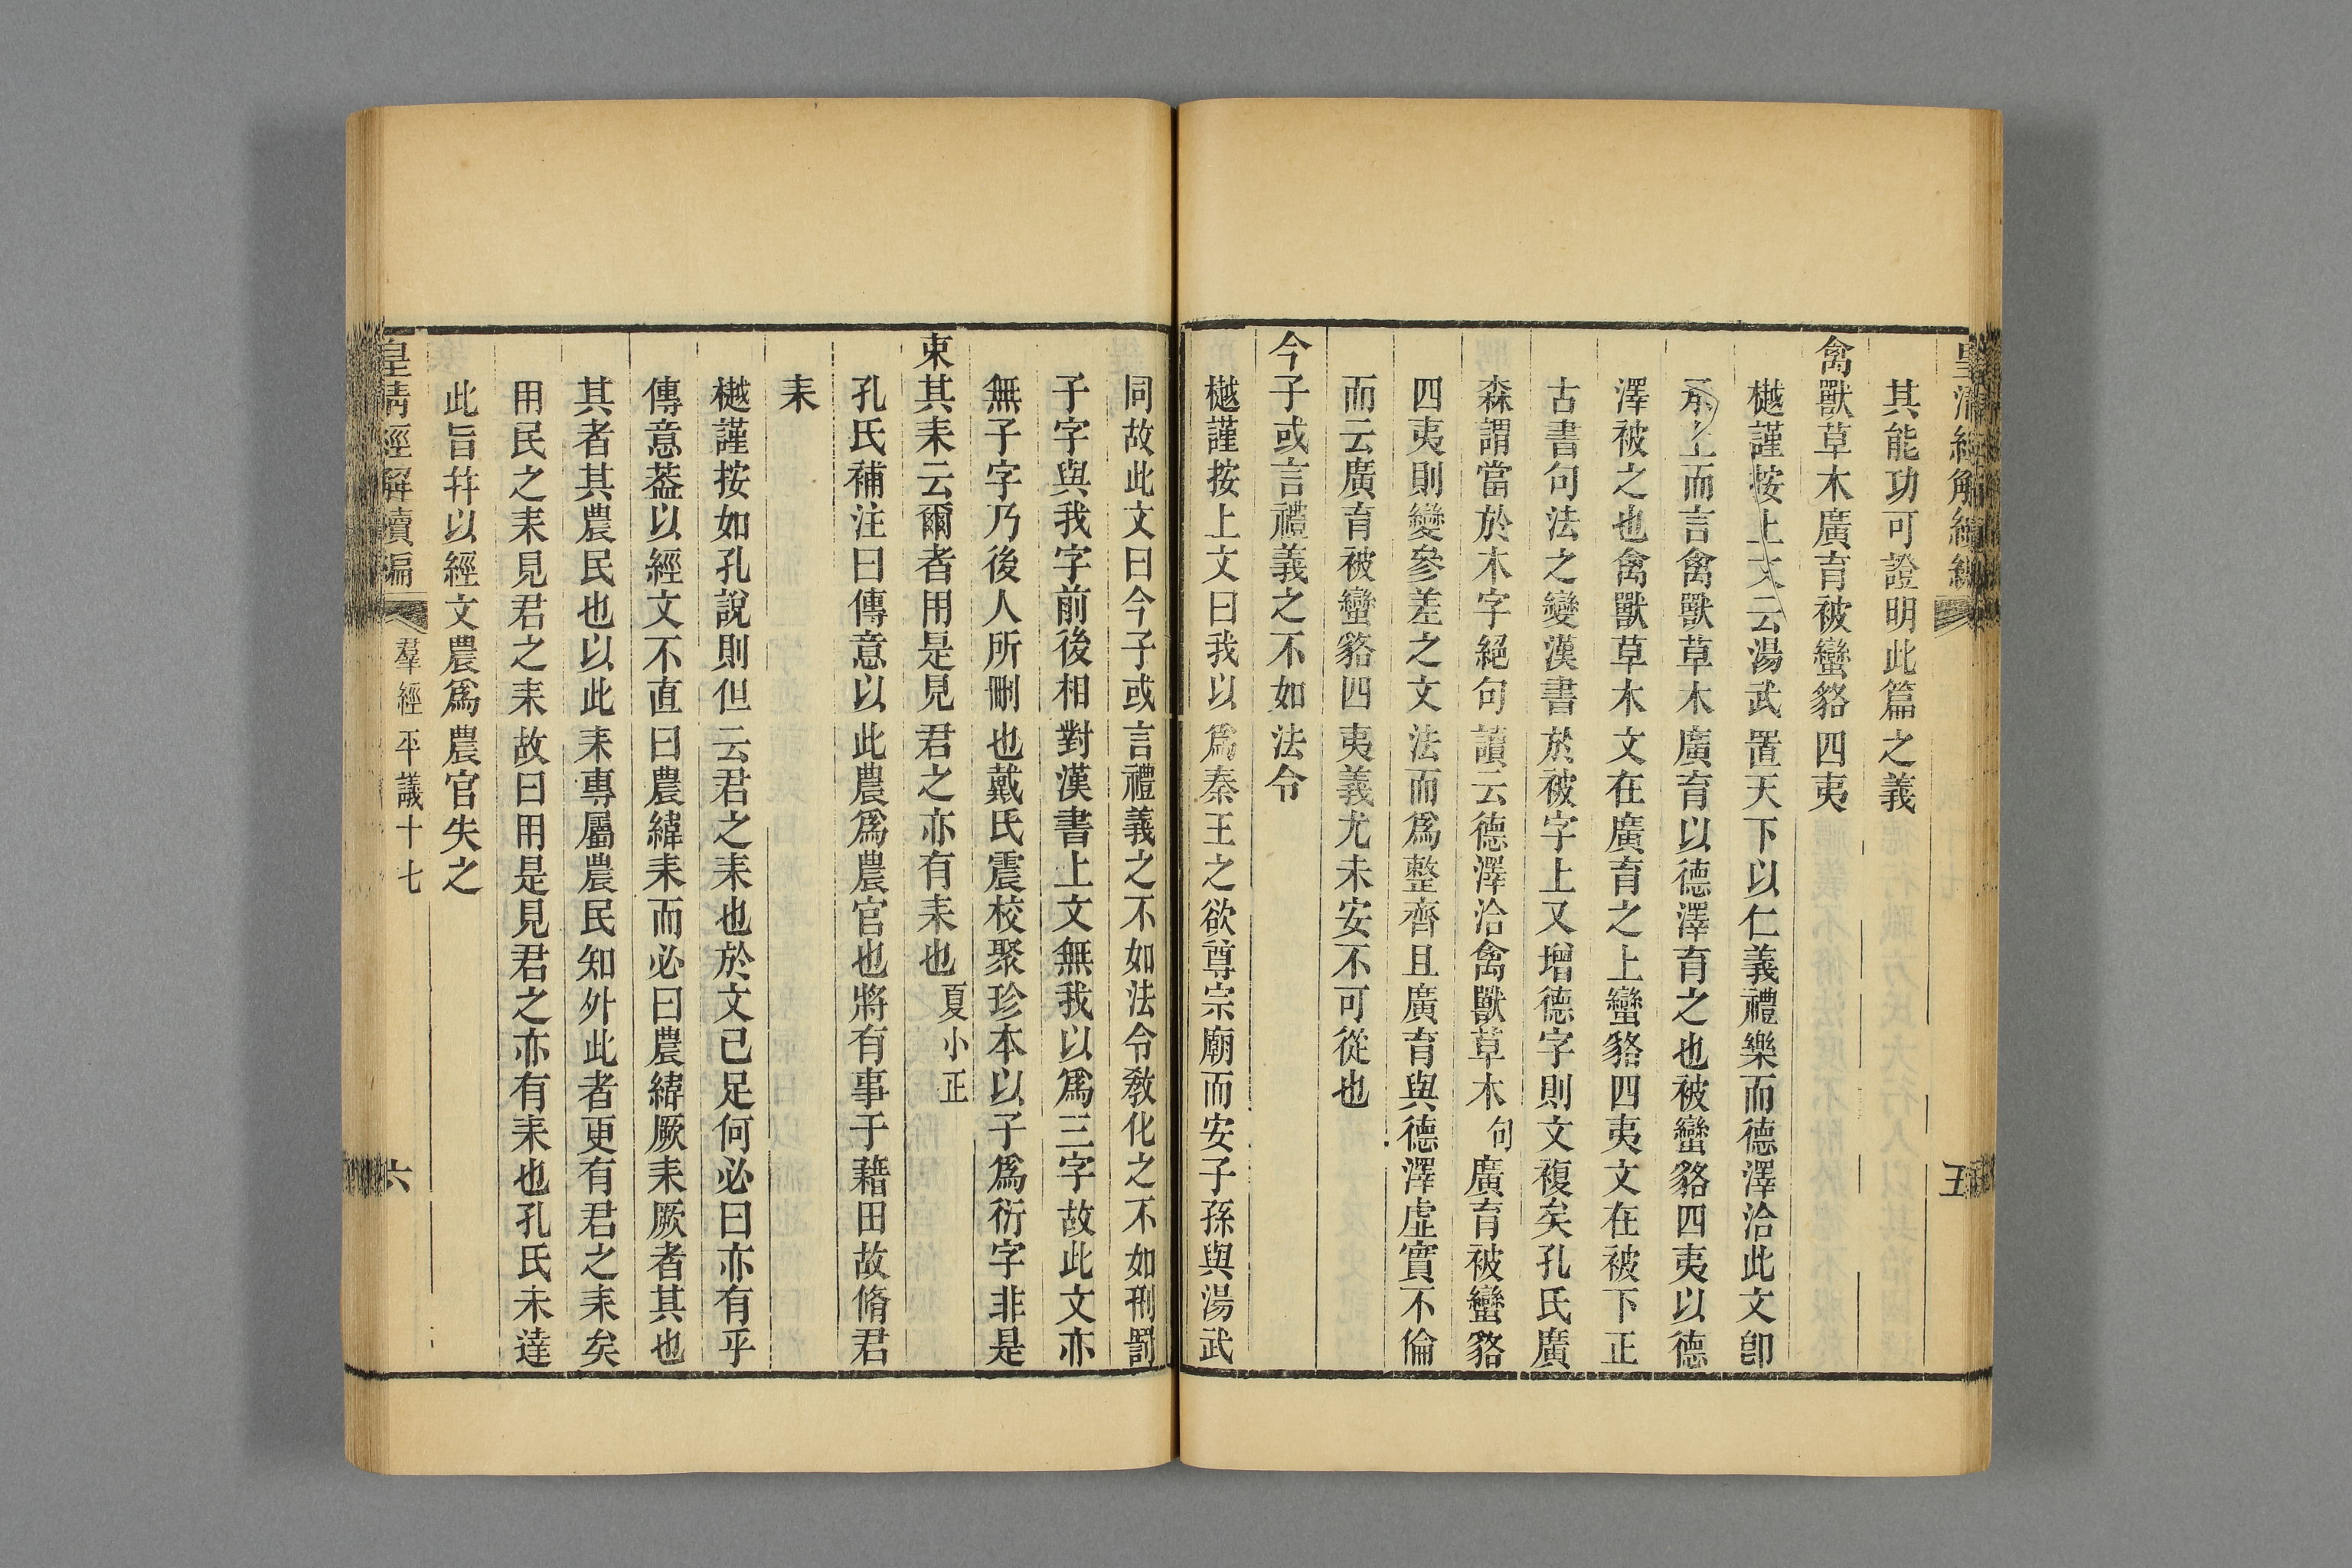 皇清經解續編
五
其能功可證明此篇之義
禽獸草木廣育被蠻貉四夷
樾謹按上文云湯武置天下以仁義禮樂而德澤洽此文卽
承上而言禽獸草木廣育以德澤育之也被蠻貉四夷以德
澤被之也禽獸草木文在廣育之上蠻貉四夷文在被下正
古書句法之變漢書於被字上又增德字則文複矣孔氏廣
森謂當於木字絕句讀云德澤洽禽獸草木句廣育被蠻貉
四夷則變參差之文法而爲整齊且廣育與德澤虛實不倫
而云廣育被蠻貉四夷義尤未安不可從也
今子或言禮義之不如法令
樾謹按上文曰我以爲秦王之欲尊宗廟而安子孫與湯武
同故此文曰今子或言禮義之不如法令敎化之不如刑罰
子字與我字前後相對漢書上文無我以爲三字故此文亦
無子字乃後人所刪也戴氏震校聚珍本以子爲衍字非是
束其耒云爾者用是見君之亦有耒也夏小正
孔氏補注曰傳意以此農爲農官也將有事于藉田故脩君
耒
樾謹按如孔說則但云君之耒也於文已足何必曰亦有乎
傳意葢以經文不直曰農緯耒而必曰農緯厥耒厥者其也
其者其農民也以此耒專屬農民知外此者更有君之耒矣
用民之耒見君之耒故曰用是見君之亦有耒也孔氏未達
此旨幷以經文農爲農官失之
皇清經解續編
羣經平議十七
六